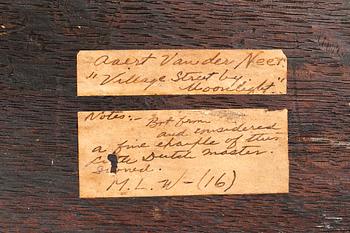 Aaert Vander Neer.
"Village Street by
Moonlight."
Notes:- Bot from
and considered
a fine example of this
Dutch master.
Signed.
M. L. W - (16)